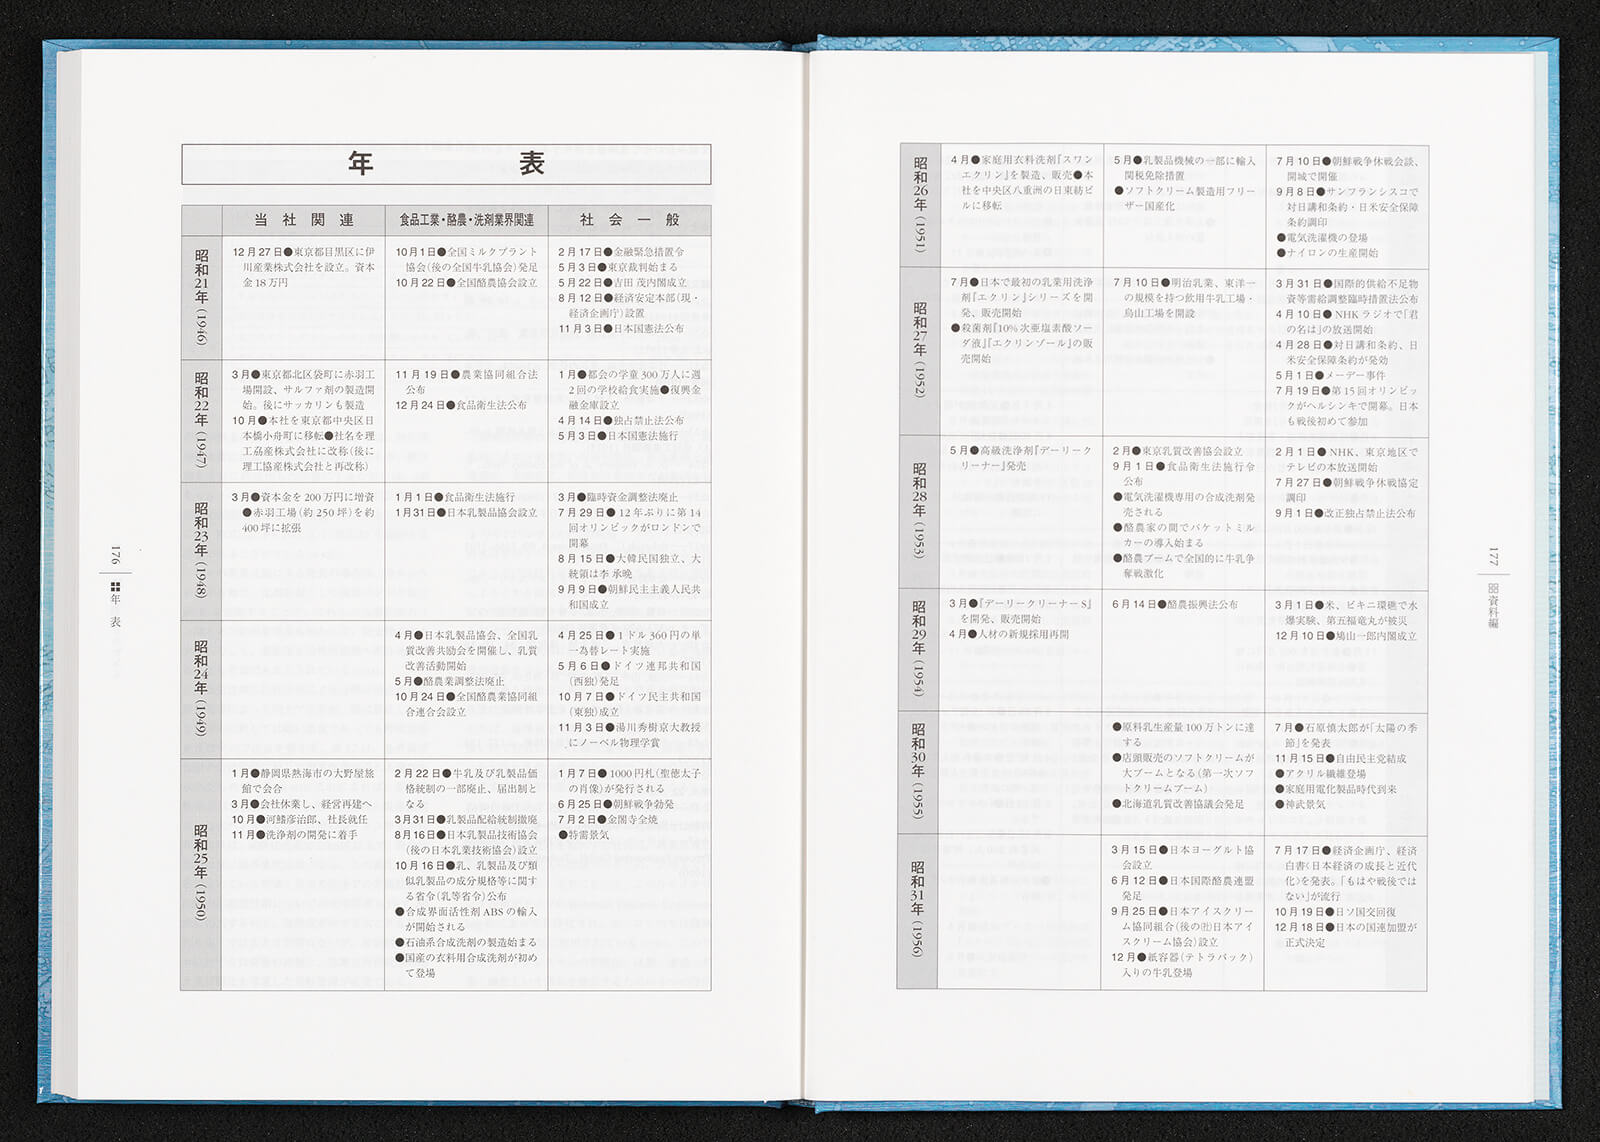 年 表
当社関連
食品工業・酪農・洗剤業界関連
社会一般
昭和21年(1946)
12月27日●東京都目黒区に伊
川産業株式会社を設立。資本
金18万円
10月1日●全国ミルクプラント
協会(後の全国牛乳協会)発足
10月22日●全国酪農協会設立
2月17日●金融緊急措置令
5月3日●東京裁判始まる
5月22日●吉田 茂内閣成立
8月12日●経済安定本部(現・
経済企画庁)設置
11月3日●日本国憲法公布
昭和22年(1947)
3月●東京都北区袋町に赤羽工
場開設、サルファ剤の製造開
始。後にサッカリンも製造
10月●本社を東京都中央区日
本橋小舟町に移転●社名を理
工協産株式会社に改称(後に
理工協産株式会社と再改称)
11月19日●農業協同組合法
公布
12月24日●食品衛生法公布
1月●都会の学童300万人に週
2回の学校給食実施●復興金
融金庫設立
4月14日●独占禁止法公布
5月3日●日本国憲法施行
昭和23年(1948)
3月●資本金を200万円に増資
●赤羽工場(約250坪)を約
400坪に拡張
1月1日●食品衛生法施行
1月31日●日本乳製品協会設立
3月●臨時資金調整法廃止
7月29日●12年ぶりに第14
回オリンピックがロンドンで
開幕
8月15日●大韓民国独立、大
統領は李 承晩
9月9日●朝鮮民主主義人民共
和国成立
昭和24年(1949)
4月●日本乳製品協会、全国乳
質改善共励会を開催し、乳質
改善活動開始
5月●酪農業調整法廃止
10月24日●全国酪農業協同組
合連合会設立
4月25日●1ドル360円の単
一為替レート実施
5月6日●ドイツ連邦共和国
(西独)発足
10月7日●ドイツ民主共和国
(東独)成立
11月3日●湯川秀樹京大教授
にノーベル物理学賞
昭和25年(1950)
1月●静岡県熱海市の大野屋旅
館で会合
3月●会社休業し、経営再建へ
10月●河鰭彦治郎、社長就任
11月●洗浄剤の開発に着手
2月22日●牛乳及び乳製品価
格統制の一部廃止、届出制と
なる
3月31日●乳製品配給統制撤廃
8月16日●日本乳製品技術協会
(後の日本乳業技術協会)設立
10月16日●乳、乳製品及び類
似乳製品の成分規格等に関す
る省令(乳等省令)公布
●合成界面活性剤ABSの輸入
が開始される
●石油系合成洗剤の製造始まる
●国産の衣料用合成洗剤が初め
て登場
1月7日●1000円札(聖徳太子
の肖像)が発行される
6月25日●朝鮮戦争勃発
7月2日●金閣寺全焼
●特需景気
176
年 表
昭和26年(1951)
4月●家庭用衣料洗剤『スワン
エクリン』を製造、販売●本
社を中央区八重洲の日東紡ビ
ルに移転
5月●乳製品機械の一部に輸入
関税免除措置
●ソフトクリーム製造用フリー
ザー国産化
7月10日●朝鮮戦争休戦会談、
開城で開催
9月8日●サンフランシスコで
対日講和条約・日米安全保障
条約調印
●電気洗濯機の登場
●ナイロンの生産開始
昭和27年(1952)
7月●日本で最初の乳業用洗浄
剤『エクリン』シリーズを開
発、販売開始
●殺菌剤『10%次亜塩素酸ソー
ダ液』『エクリンゾール』の販
売開始
7月10日●明治乳業、東洋一
の規模を持つ飲用牛乳工場・
烏山工場を開設
3月31日●国際的供給不足物
資等需給調整臨時措置法公布
4月10日●NHKラジオで「君
の名は」の放送開始
4月28日●対日講和条約、日
米安全保障条約が発効
5月1日●メーデー事件
7月19日●第15回オリンピッ
クがヘルシンキで開幕。日本
も戦後初めて参加
昭和28年(1953)
5月●高級洗浄剤『デーリーク
リーナー』発売
2月●東京乳質改善協会設立
9月1日●食品衛生法施行令
公布
●電気洗濯機専用の合成洗剤発
売される
●酪農家の間でバケットミル
カーの導入始まる
●酪農ブームで全国的に牛乳争
奪戦激化
2月1日●NHK、東京地区で
テレビの本放送開始
7月27日●朝鮮戦争休戦協定
調印
9月1日●改正独占禁止法公布
昭和29年(1954)
3月●『デーリークリーナーS』
を開発、販売開始
4月●人材の新規採用再開
6月14日●酪農振興法公布
3月1日●米、ビキニ環礁で水
爆実験、第五福竜丸が被災
12月10日●鳩山一郎内閣成立
昭和30年(1955)
●原料乳生産量100万トンに達
する
●店頭販売のソフトクリームが
大ブームとなる(第一次ソフ
トクリームブーム)
●北海道乳質改善協議会発足
7月●石原慎太郎が「太陽の季
節」を発表
11月15日●自由民主党結成
●アクリル繊維登場
●家庭用電化製品時代到来
●神武景気
昭和31年(1956)
3月15日●日本ヨーグルト協
会設立
6月12日●日本国際酪農連盟
発足
9月25日●日本アイスクリー
ム協同組合(後の㈳日本アイ
スクリーム協会)設立
12月●紙容器(テトラパック)
入りの牛乳登場
7月17日●経済企画庁、経済
白書〈日本経済の成長と近代
化〉を発表。「もはや戦後では
ない」が流行
10月19日●日ソ国交回復
12月18日●日本の国連加盟が
正式決定
177
資料編